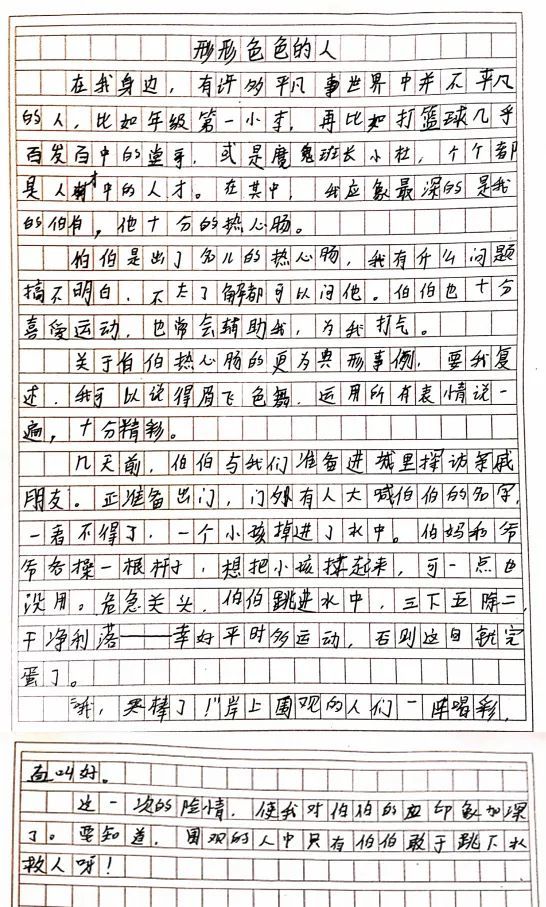 形形色色的人
在我身边，有许多平凡事世界中并不平凡
的人，比如年级第一小李，再比如打篮球几乎
百发百中的坐哥，或是魔鬼班长小杜，个个都
是人才中的人才。在其中，我应象最深的是我
的伯伯，他十分的热心肠。
伯伯是出了名儿的热心肠，我有什么问题
搞不明白，不太了解都可以问他。伯伯也十分
喜爱运动，也常会辅助我，为我打气。
关于伯伯热心肠的更为典形事例，要我复
述，我可以说得眉飞色舞，运用所有表情说一
遍，十分精彩。
几天前，伯伯与我们准备进城里探访亲戚
朋友。正准备出门，门外有人大喊伯伯的名字，
一看不得了，一个小孩掉进了水中。伯妈和爷
爷各操一根杆子，想把小孩撑起来，可一点也
没用。危急关头，伯伯跳进水中，三下五除二，
干净利落——幸好平时多运动，否则这回就完
蛋了。
"哦，太棒了！"岸上围观的人们一阵喝彩，
直叫好。
这一次的险情，使我对伯伯的应印象加深
了。要知道，围观的人中只有伯伯敢于跳下水
救人呀！